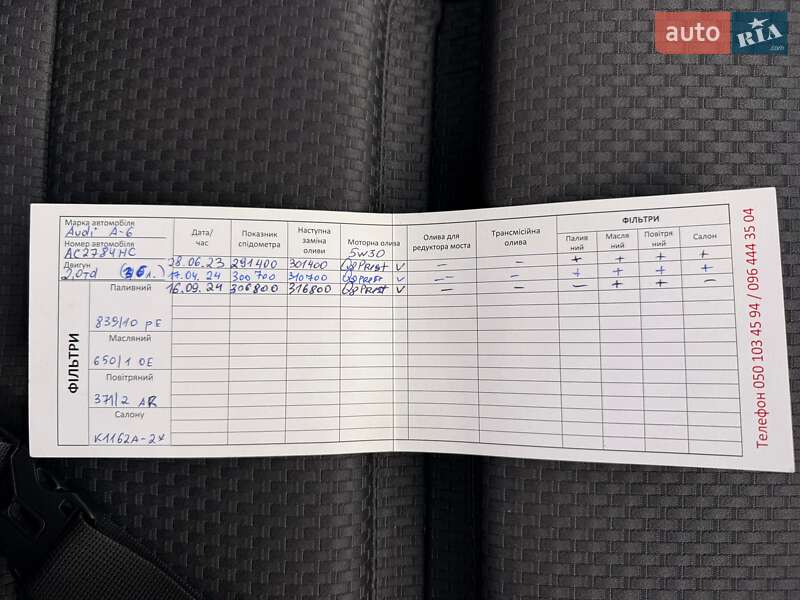 auto RIA
.com
Марка автомобіля
Audi A-6
Номер автомобіля
AC2784HC
Двигун
2,0td (3,6 л.)
Дата/час Показник спідометра Наступна заміна оливи Моторна олива Олива для редуктора моста Трансмісійна олива ФІЛЬТРИ
Паливний Масляний Повітряний Салон
5w30
28.06.23 291400 301400 Q8 V — — + + + +
17.04.24 300700 310700 Q8 V — — + + + +
16.09.24 306800 316800 Q8 V — — — + + —
ФІЛЬТРИ
Паливний
839/10 PE
Масляний
650/1 OE
Повітряний
371/2 AR
Салону
K1162A-2x
Телефон 050 103 45 94 / 096 444 35 04